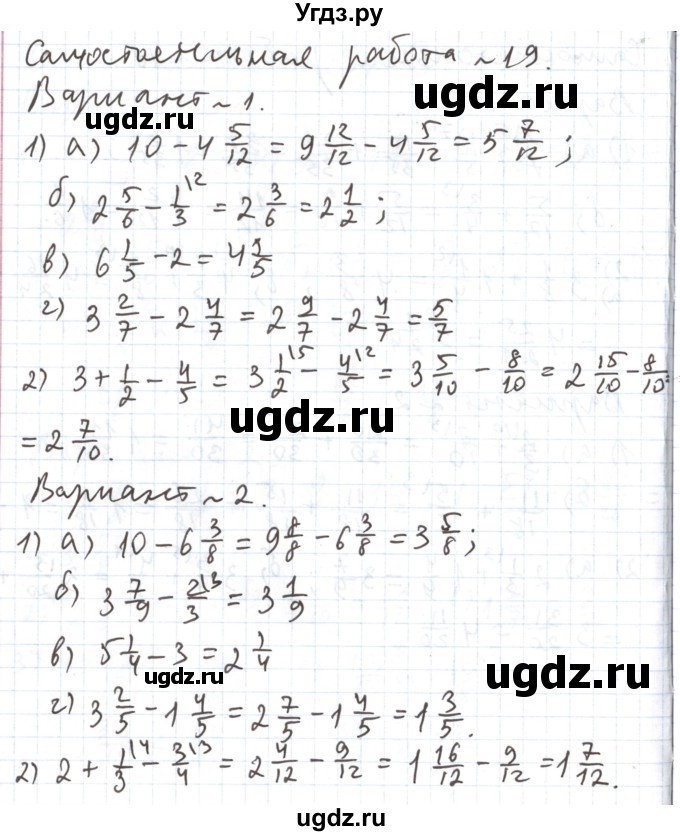 Угдз.ру
Самостоятельная работа ~19.
Вариант ~1.
ugdz.ru
ugdz.ru
1) а) 10 - 4 5/12 = 9 12/12 - 4 5/12 = 5 7/12 ;
б) 2 5/6 - 1/3 \2 = 2 3/6 = 2 1/2 ;
в) 6 1/5 - 2 = 4 1/5
ugdz.ru
ugdz.ru
г) 3 2/7 - 2 4/7 = 2 9/7 - 2 4/7 = 5/7
2) 3 + 1/2 - 4/5 = 3 1/2 \5 - 4/5 \2 = 3 5/10 - 8/10 = 2 15/10 - 8/10 =
ugdz.ru
= 2 7/10.
Вариант ~2.
1) а) 10 - 6 3/8 = 9 8/8 - 6 3/8 = 3 5/8 ;
б) 3 7/9 - 2/3 \3 = 3 1/9
в) 5 1/4 - 3 = 2 1/4
ugdz.ru
ugdz.ru
г) 3 2/5 - 1 4/5 = 2 7/5 - 1 4/5 = 1 3/5.
2) 2 + 1/3 \4 - 3/4 \3 = 2 4/12 - 9/12 = 1 16/12 - 9/12 = 1 7/12.
ugdz.ru